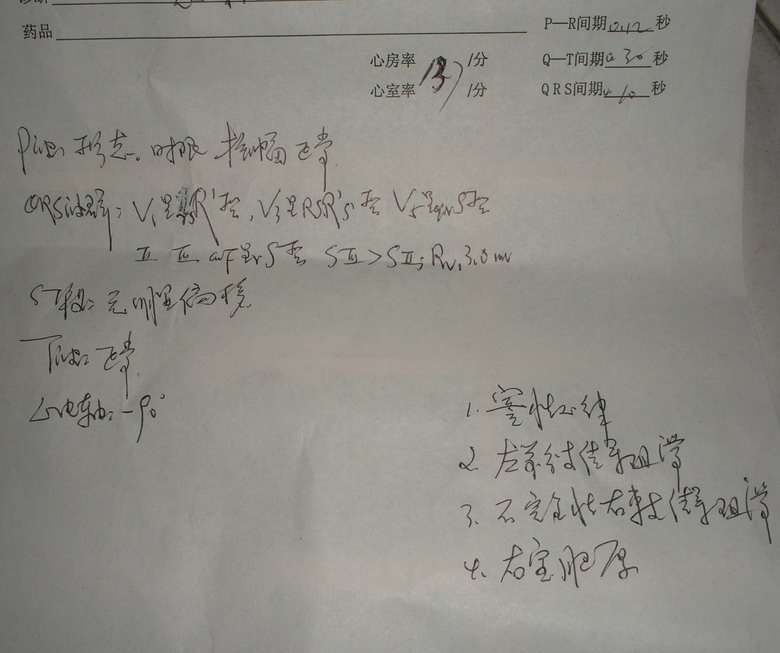 药品
P—R间期0.12秒
心房率 137 /分 Q—T间期0.30秒
心室率 /分 QRS间期0.10秒
P波: 形态、时限、振幅正常
QRS波群: V₁呈R'型, V₃呈RSR'S'型 V₅呈qrS型
II III avF呈rS型 SIII>SII; RV₁ 3.0mv
ST段: 无明显偏移
T波: 正常
心电轴: -90°
1. 窦性心律
2. 左前分支传导阻滞
3. 不完全性右束支传导阻滞
4. 右室肥厚